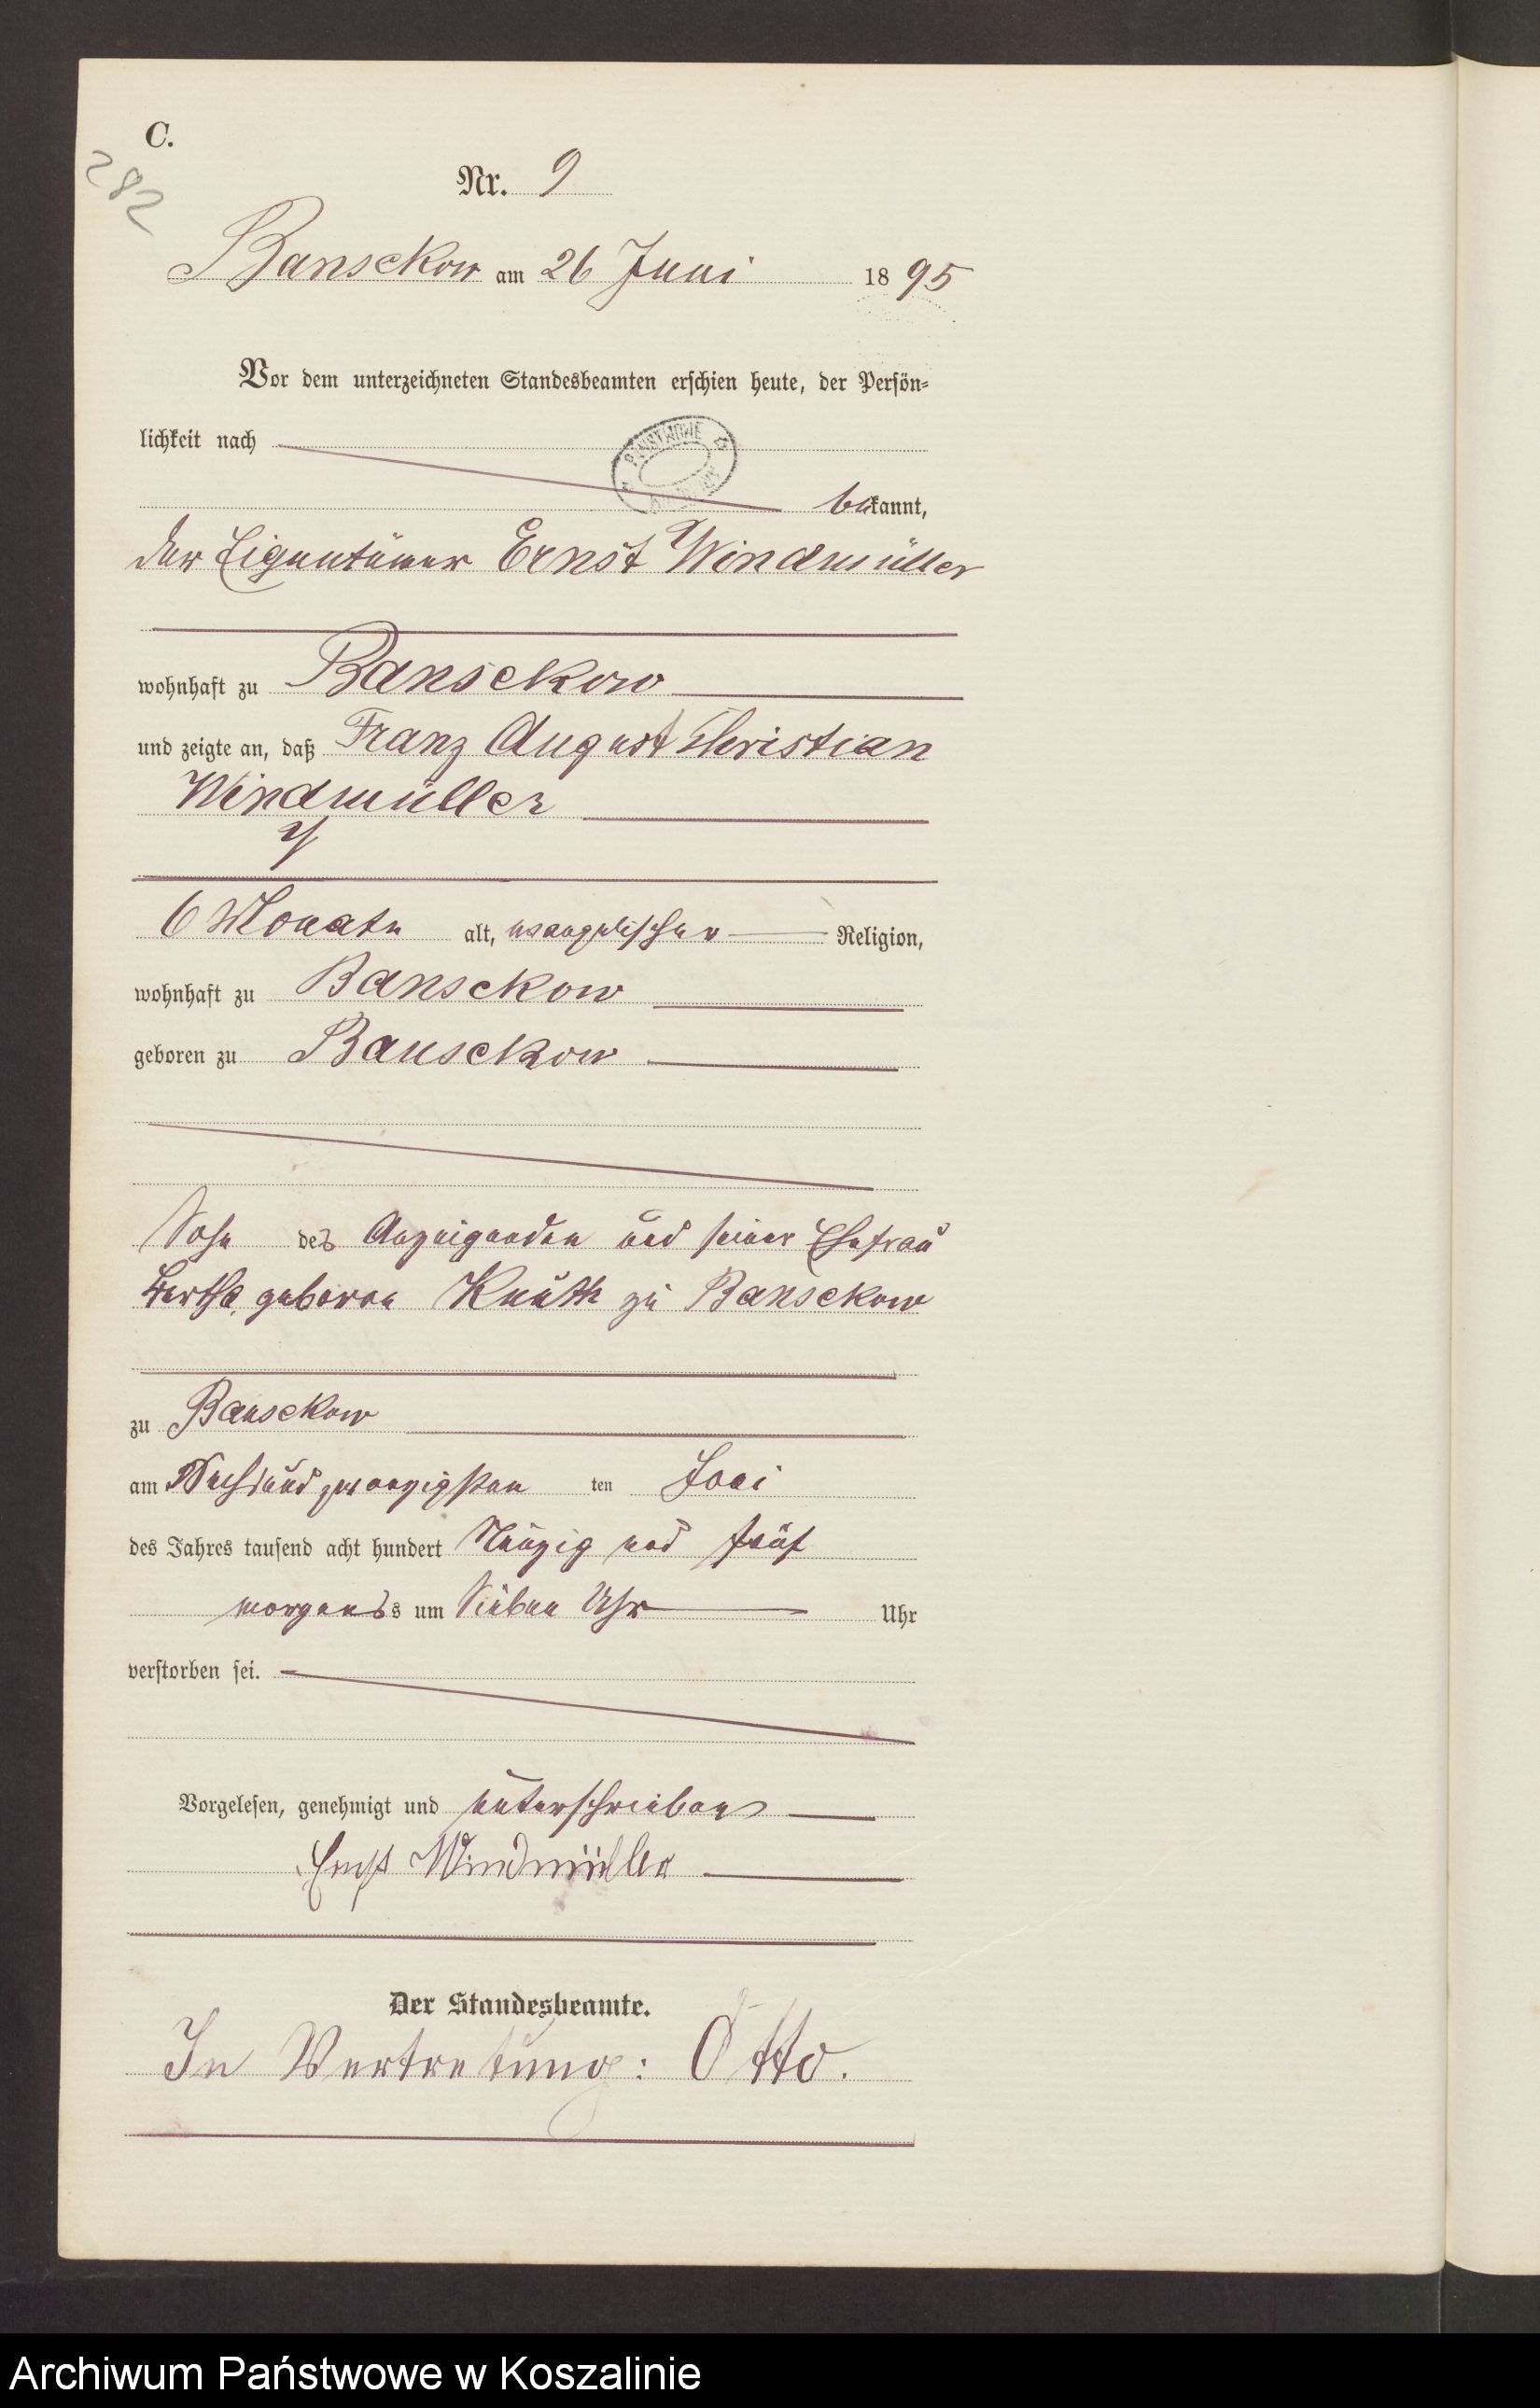 C.
282
Nr. 9
Bansekow am 26 Juni 1895
Vor dem unterzeichneten Standesbeamten erschien heute, der Persön-
lichkeit nach
bekannt,
der Eigentümer Ernst Windmüller
wohnhaft zu Bansekow
und zeigte an, daß Franz August Christian
Windmüller
6 Monate alt, evangelischer Religion,
wohnhaft zu Bansekow
geboren zu Bansekow
Sohn des Anzeigenden und seiner Ehefrau
Bertha geboren Knuth zu Bansekow
zu Bansekow
am ten Juni
des Jahres tausend acht hundert Neunzig und fünf
morgens um Sieben Uhr Uhr
verstorben sei.
Vorgelesen, genehmigt und unterschrieben
Ernst Windmüller
Der Standesbeamte.
In Vertretung: Otto.
Archiwum Państwowe w Koszalinie